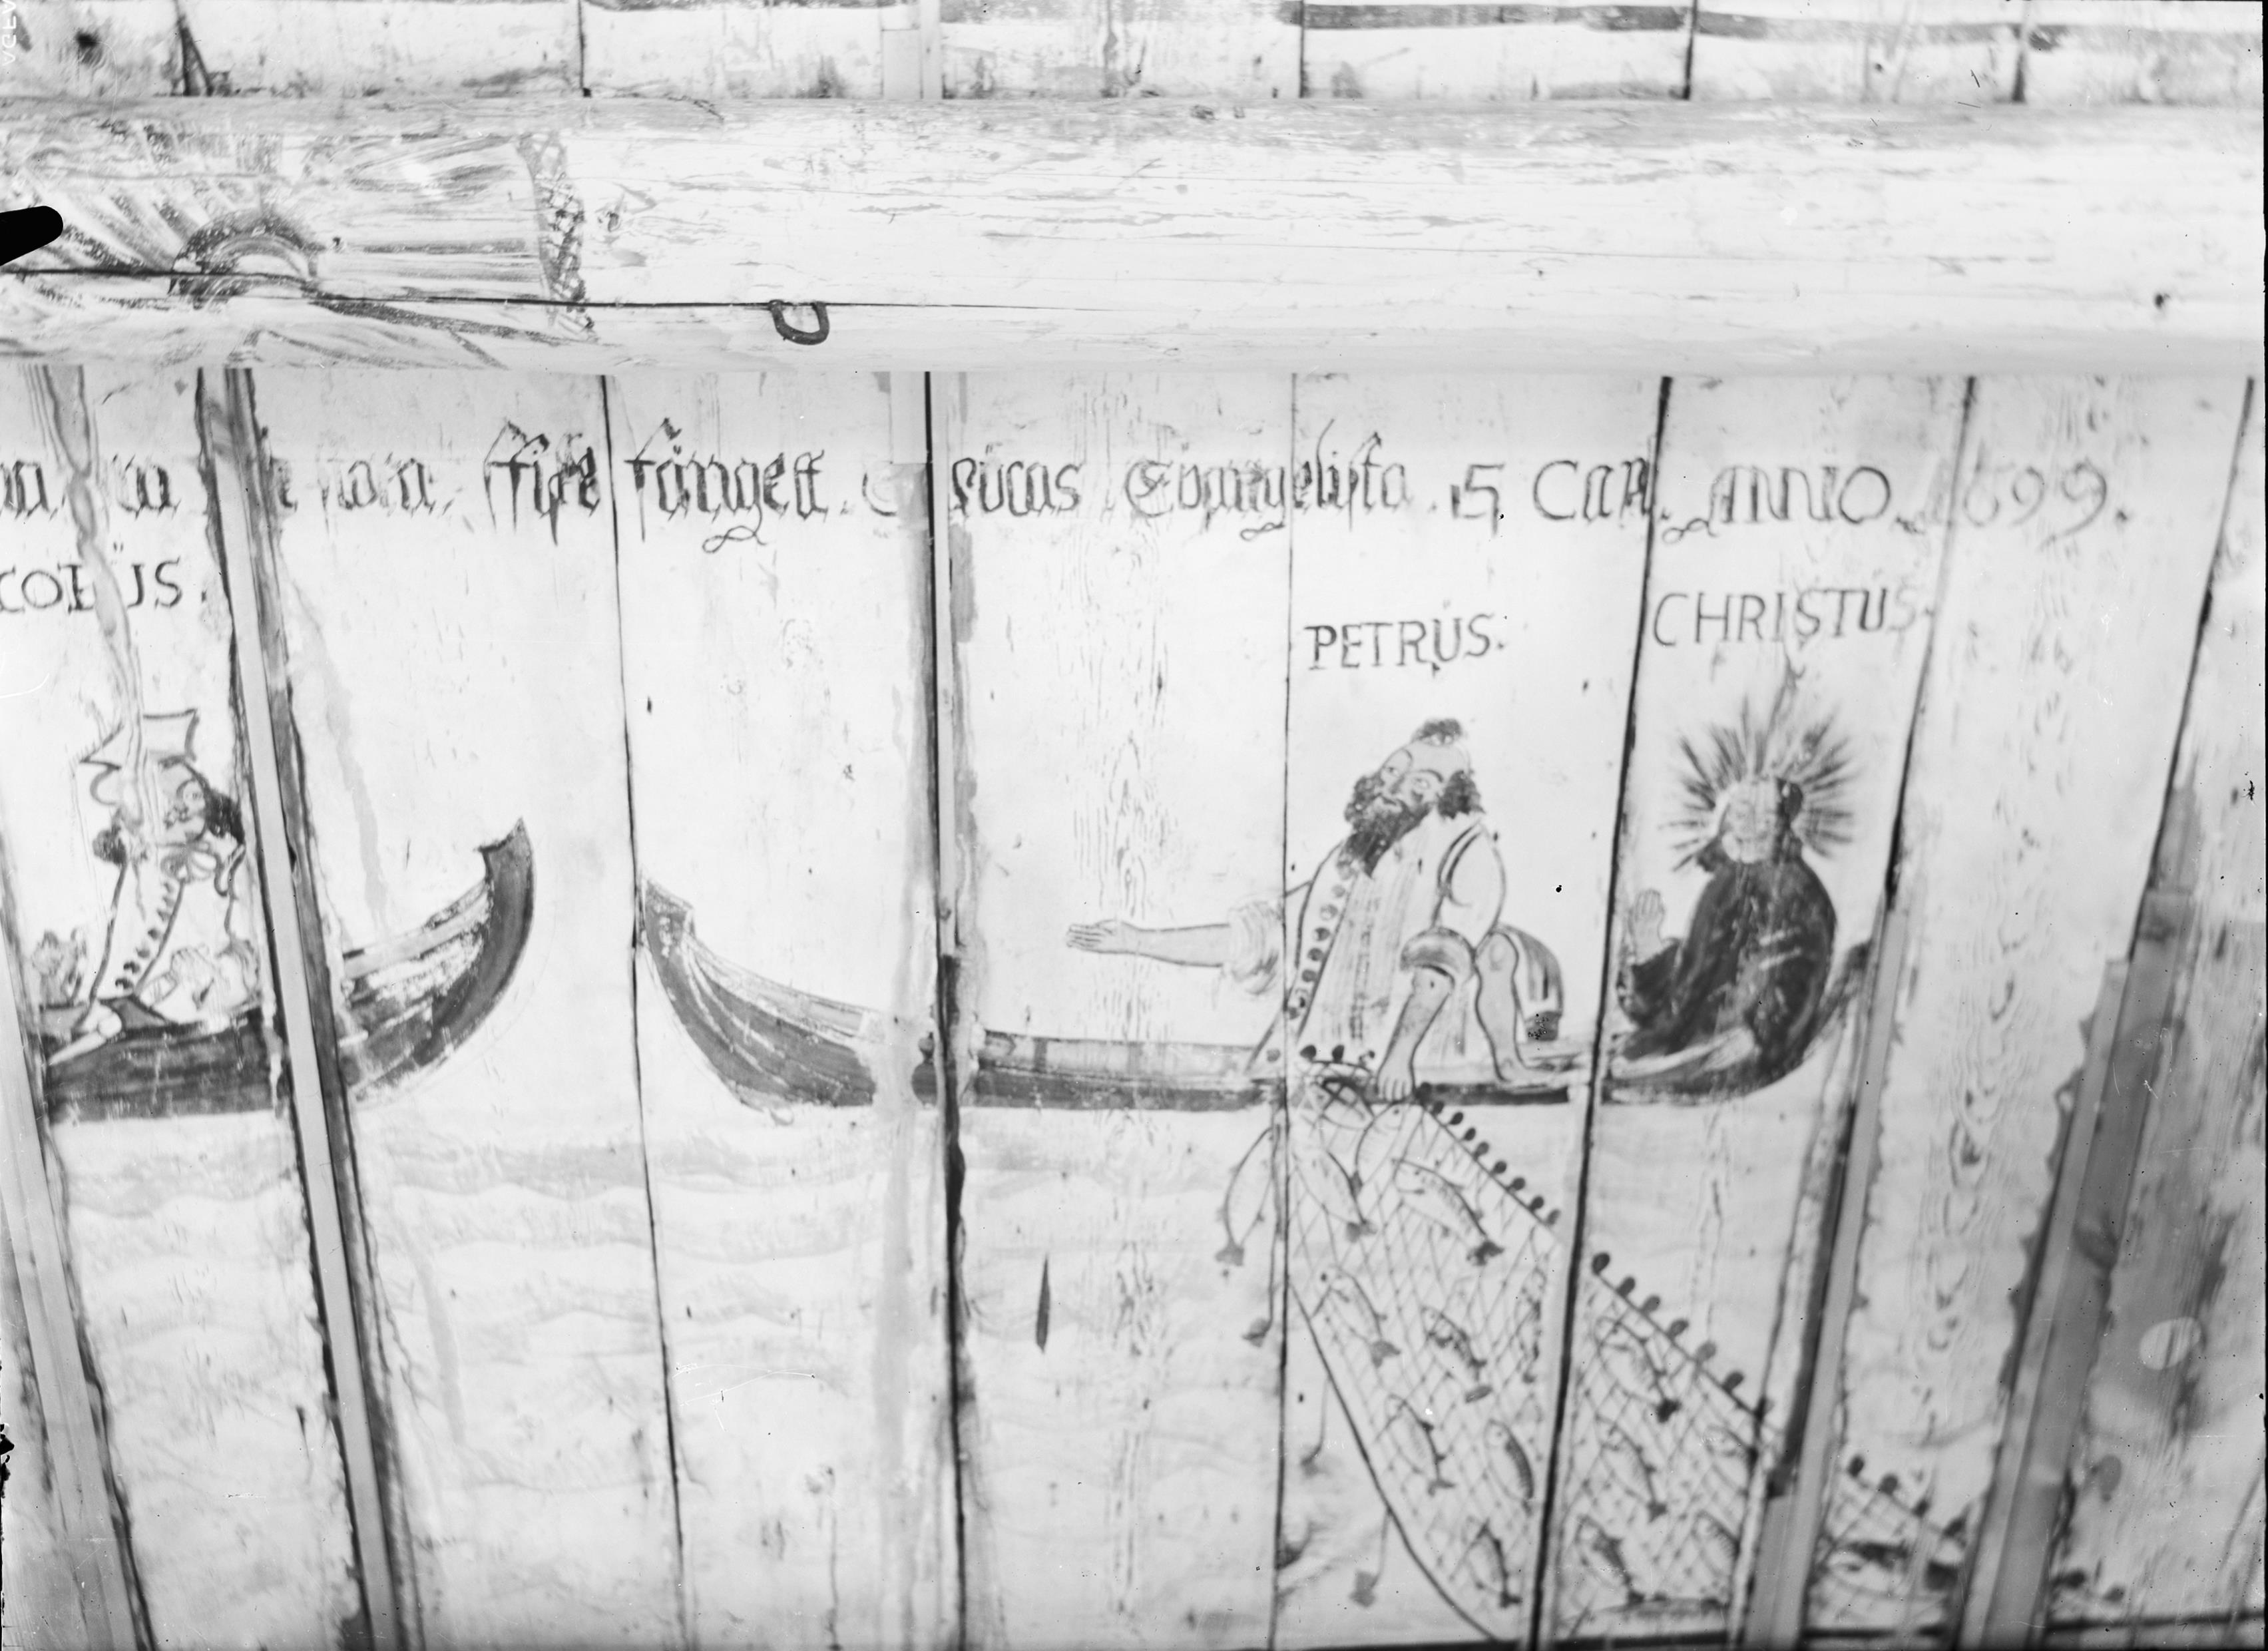 fiske fånget. Lucas Evangelista. 5 Cap. ANNO 1699.
COBUS.
PETRUS.
CHRISTUS.